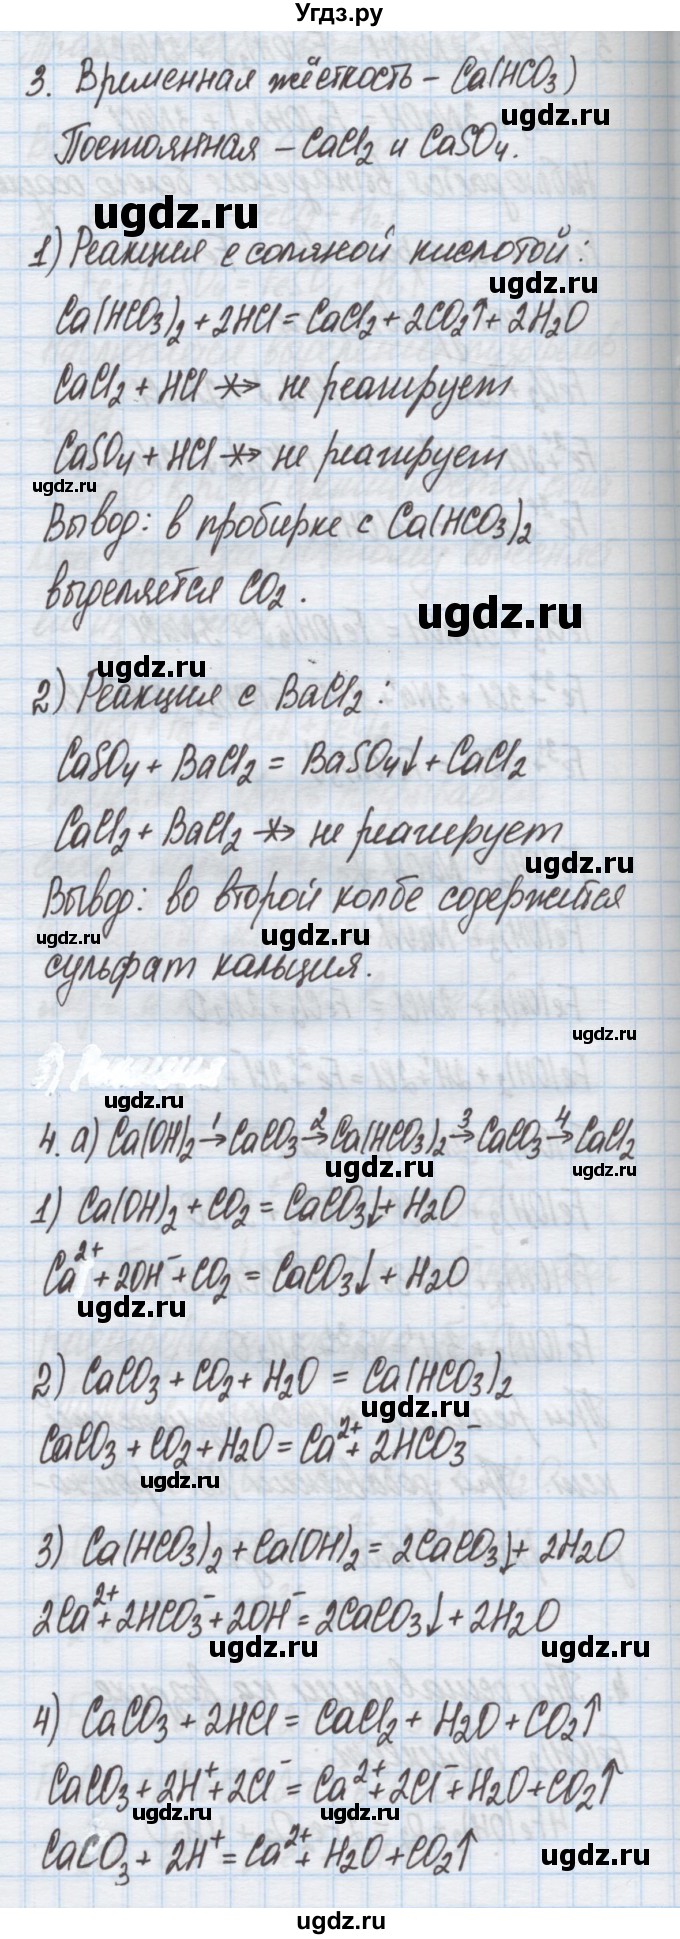 Угдз.ру
3. Временная жёсткость – Ca(HCO₃)
ugdz.ru
Постоянная – CaCl₂ и CaSO₄.
ugdz.ru
1) Реакция с соляной кислотой:
ugdz.ru
Ca(HCO₃)₂ + 2HCl = CaCl₂ + 2CO₂↑ + 2H₂O
CaCl₂ + HCl -×→ не реагирует
CaSO₄ + HCl -×→ не реагирует
ugdz.ru
Вывод: в пробирке с Ca(HCO₃)₂
выделяется CO₂.
ugdz.ru
ugdz.ru
2) Реакция с BaCl₂:
CaSO₄ + BaCl₂ = BaSO₄↓ + CaCl₂
CaCl₂ + BaCl₂ -×→ не реагирует
ugdz.ru
Вывод: во второй колбе содержится
ugdz.ru ugdz.ru
сульфат кальция.
ugdz.ru
ugdz.ru
4. а) Ca(OH)₂ →¹ CaCO₃ →² Ca(HCO₃)₂ →³ CaCO₃ →⁴ CaCl₂
ugdz.ru ugdz.ru
1) Ca(OH)₂ + CO₂ = CaCO₃↓ + H₂O
Ca²⁺ + 2OH⁻ + CO₂ = CaCO₃↓ + H₂O
ugdz.ru
2) CaCO₃ + CO₂ + H₂O = Ca(HCO₃)₂
ugdz.ru
CaCO₃ + CO₂ + H₂O = Ca²⁺ + 2HCO₃⁻
ugdz.ru
3) Ca(HCO₃)₂ + Ca(OH)₂ = 2CaCO₃↓ + 2H₂O
2Ca²⁺ + 2HCO₃⁻ + 2OH⁻ = 2CaCO₃↓ + 2H₂O
ugdz.ru ugdz.ru
4) CaCO₃ + 2HCl = CaCl₂ + H₂O + CO₂↑
CaCO₃ + 2H⁺ + 2Cl⁻ = Ca²⁺ + 2Cl⁻ + H₂O + CO₂↑
ugdz.ru ugdz.ru
CaCO₃ + 2H⁺ = Ca²⁺ + H₂O + CO₂↑
ugdz.ru
ugdz.ru